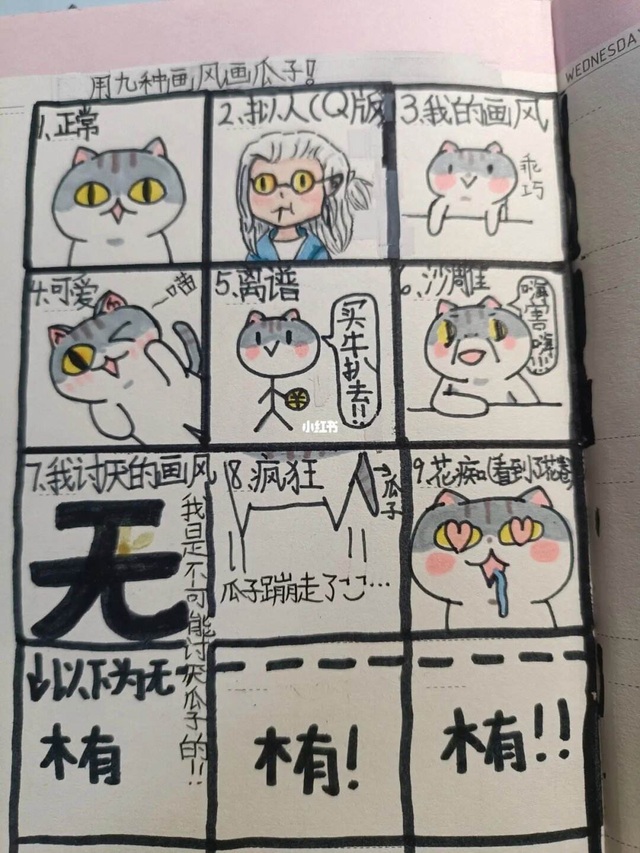 WEDNESDAY
用九种画风画瓜子!
1.正常
2.拟人(Q版
3.我的画风
乖巧
4.可爱
~喵
5.离谱
买牛扒去!!
6.沙雕
嗨害嗨!!!
小红书
7.我讨厌的画风
无
我是不可能讨厌瓜子的!!
8.疯狂
→瓜子
瓜子蹦走了…
9.花痴(看到了花卷
↓以下为无
木有
木有!
木有!!